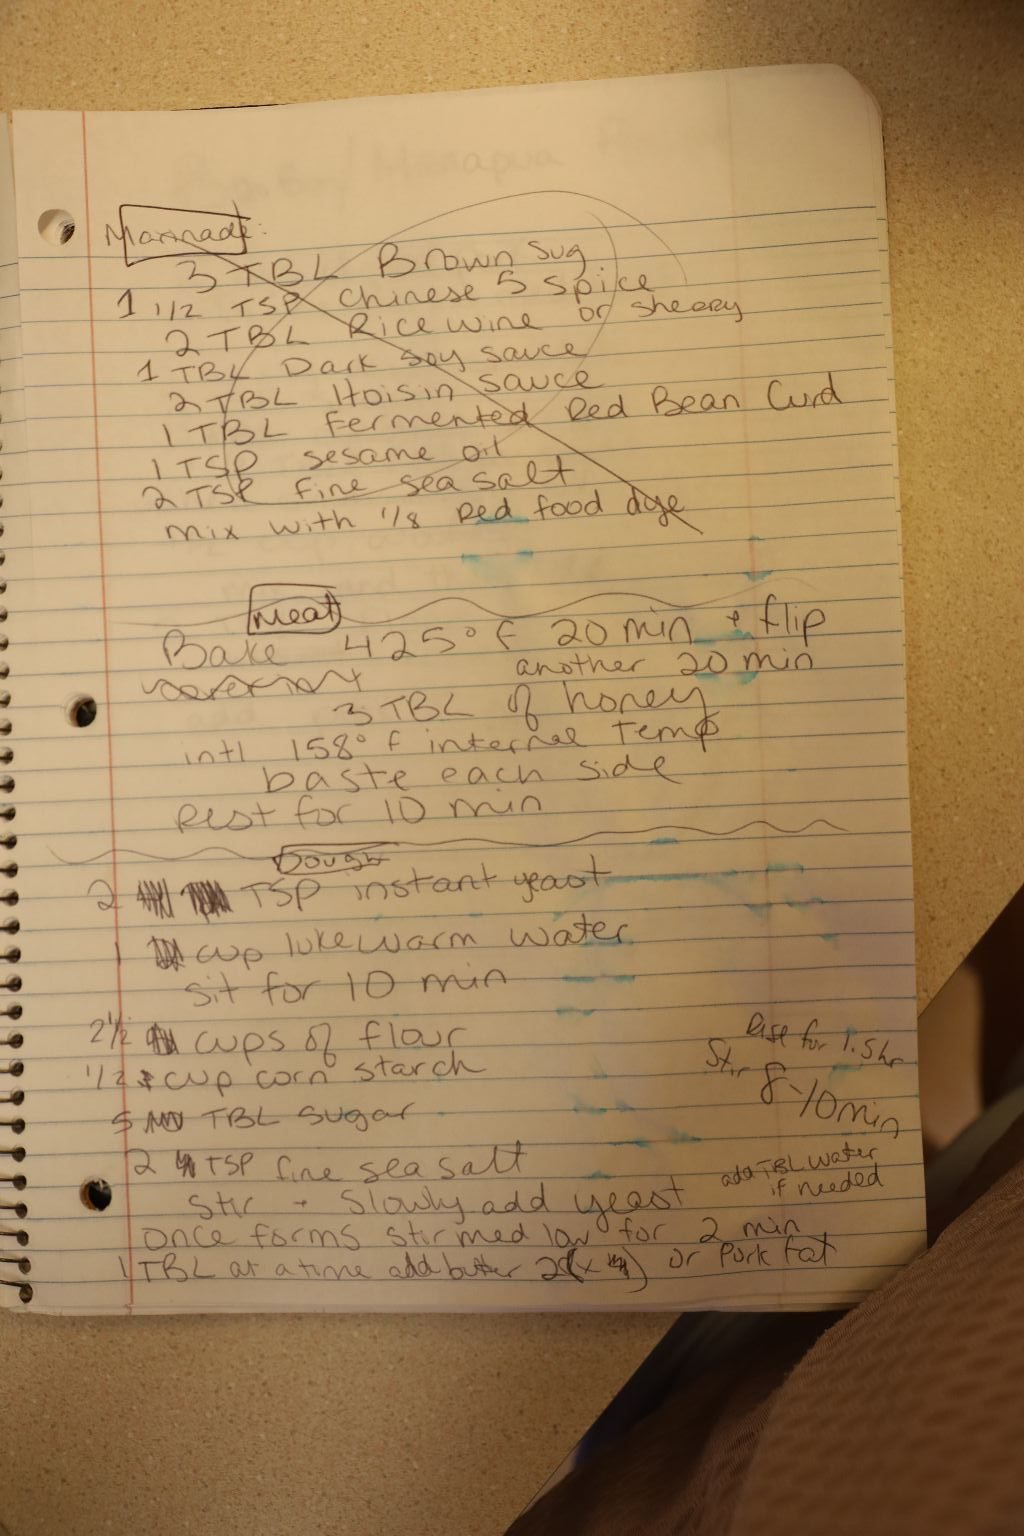 Marinade:
3 TBL Brown Sug
1 1/2 TSP Chinese 5 spice
2 TBL Rice wine or sheery
1 TBL Dark soy sauce
2 TBL Hoisin sauce
1 TBL Fermented Red Bean Curd
1 TSP sesame oil
2 TSP fine sea salt
mix with 1/8 Red food dye
Meat
Bake 425° F 20 min + flip
another 20 min
3 TBL of honey
intl 158° F internal Temp
baste each side
Rest for 10 min
Dough
2 TSP instant yeast
1 cup lukewarm water
sit for 10 min
2 1/2 cups of flour
1/2 cup corn starch
5 TBL sugar
2 TSP fine sea salt
Rise for 1.5 hr
Stir 8-10 min
add TBL water
if needed
Stir + Slowly add yeast
once forms stir med low for 2 min
1 TBL at a time add butter 2 or Pork fat